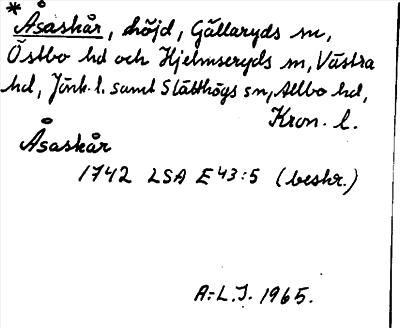 * Åsaskår, höjd, Gällaryds sn,
Östbo hd och Hjelmseryds sn, Västra
hd, Jönk. l. samt Slätthögs sn, Allbo hd,
Kron. l.
Åsaskår
1742 LSA E43:5 (beskr.)
A-L.J. 1965.